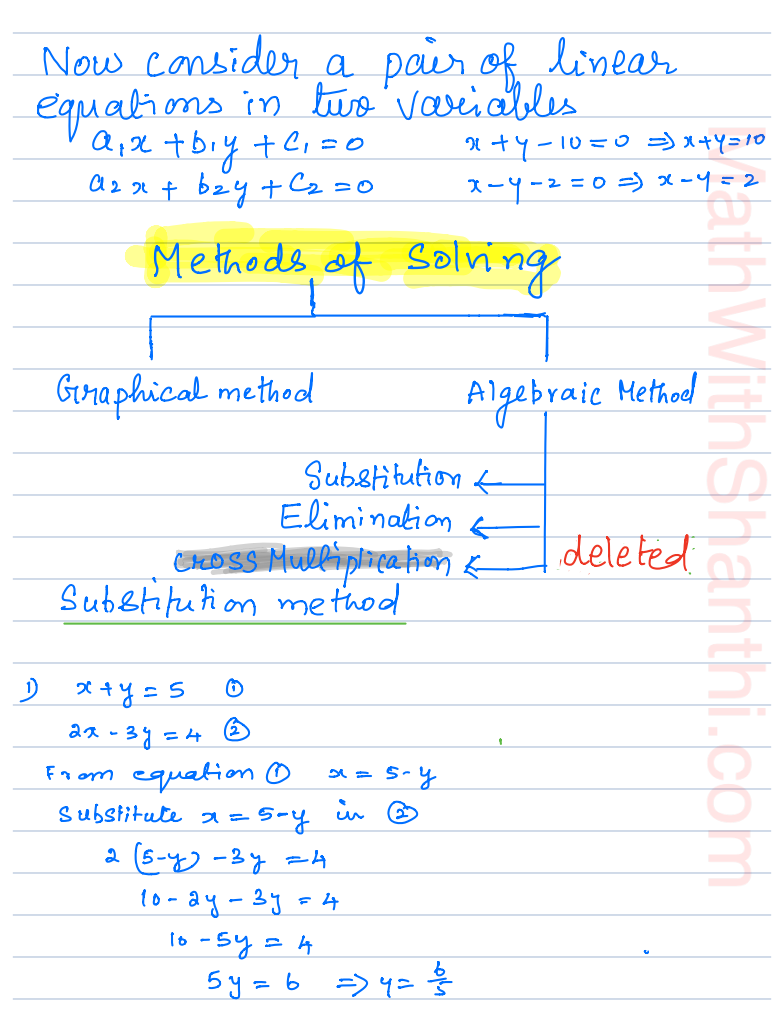 Now consider a pair of linear
equations in two variables
a₁x + b₁y + c₁ = 0 x + y - 10 = 0 ⇒ x + y = 10
a₂x + b₂y + c₂ = 0 x - y - 2 = 0 ⇒ x - y = 2
Methods of Solving
Graphical method Algebraic Method
Substitution ←
Elimination ←
Cross Multiplication ← deleted
Substitution method
1) x + y = 5 ①
2x - 3y = 4 ②
From equation ① x = 5 - y
Substitute x = 5 - y in ②
2 (5 - y) - 3y = 4
10 - 2y - 3y = 4
10 - 5y = 4
5y = 6 ⇒ y = 6/5
MathWithShanthi.com